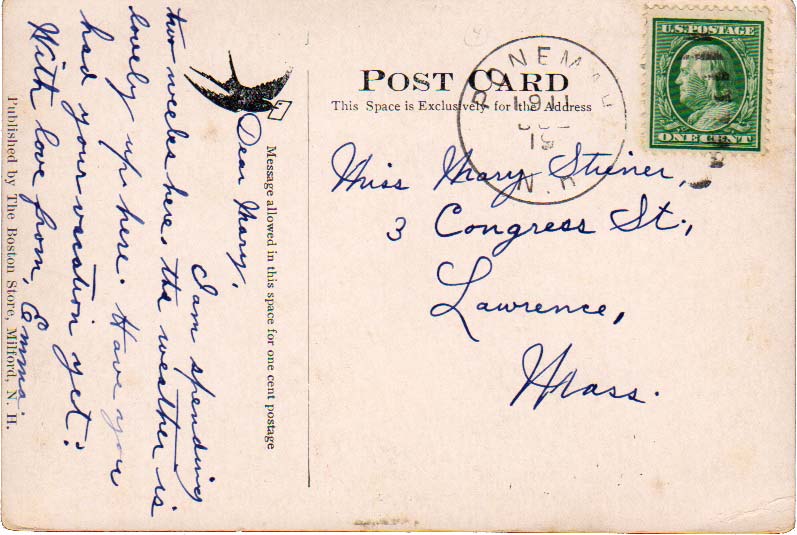 POST CARD
This Space is Exclusively for the Address
PONEMAH
1911
19
N.H.
U.S. POSTAGE
ONE CENT
Message allowed in this space for one cent postage
Dear Mary,
I am spending
two weeks here. The weather is
lovely up here. Have you
had your vacation yet?
With love from, Emma.
Published by The Boston Store, Milford, N. H.
Miss Mary Steiner,
3 Congress St.,
Lawrence,
Mass.